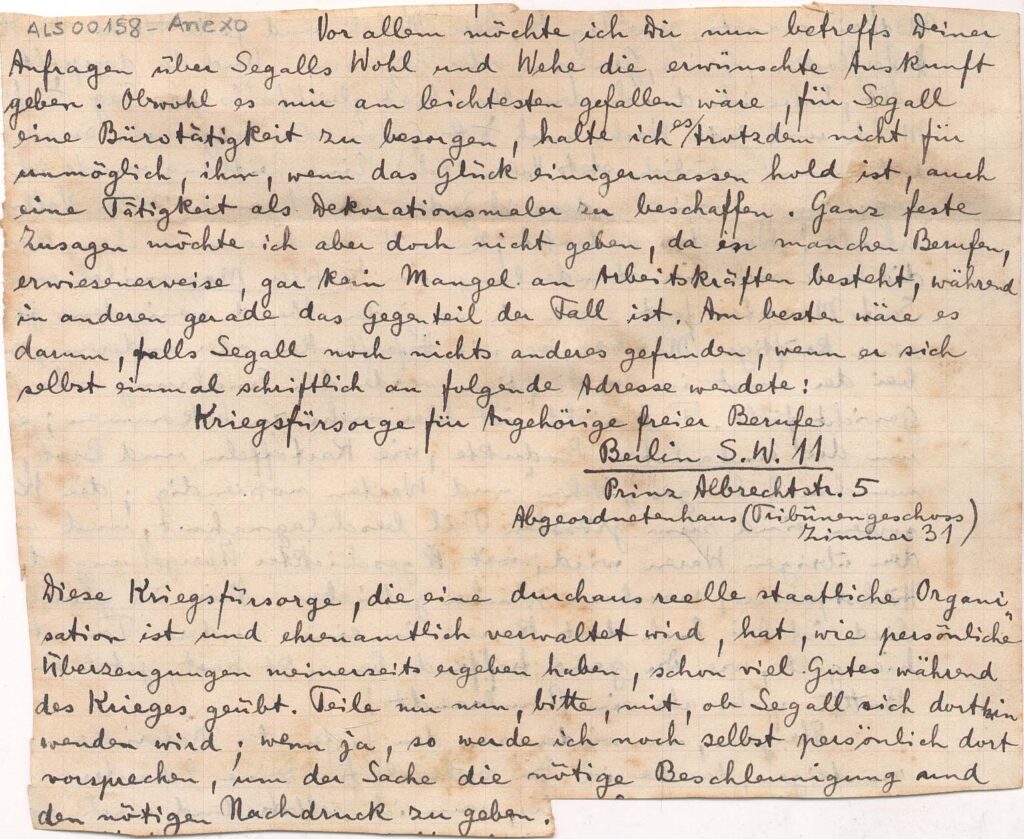 ALS 00158 - Anexo
Vor allem möchte ich Dir nun betreffs Deiner
Anfragen über Segalls Wohl und Wehe die erwünschte Auskunft
geben. Obwohl es mir am leichtesten gefallen wäre, für Segall
eine Bürotätigkeit zu besorgen, halte ich es trotzdem nicht für
unmöglich, ihm, wenn das Glück einigermassen hold ist, auch
eine Tätigkeit als Dekorationsmaler zu beschaffen. Ganz feste
Zusagen möchte ich aber doch nicht geben, da in manchen Berufen,
erwiesenerweise, gar kein Mangel an Arbeitskräften besteht, während
in anderen gerade das Gegenteil der Fall ist. Am besten wäre es
darum, falls Segall noch nichts anderes gefunden, wenn er sich
selbst einmal schriftlich an folgende Adresse wendete:
Kriegsfürsorge für Angehörige freier Berufe
Berlin S.W. 11
Prinz Albrechtstr. 5
Abgeordnetenhaus (Tribünengeschoss
Zimmer 31)
Diese Kriegsfürsorge, die eine durchaus reelle staatliche Organi-
sation ist und ehrenamtlich verwaltet wird, hat, wie persönliche
Überzeugungen meinerseits ergeben haben, schon viel Gutes während
des Krieges geübt. Teile mir nun, bitte, mit, ob Segall sich dorthin
wenden wird; wenn ja, so werde ich noch selbst persönlich dort
vorsprechen, um der Sache die nötige Beschleunigung und
den nötigen Nachdruck zu geben.